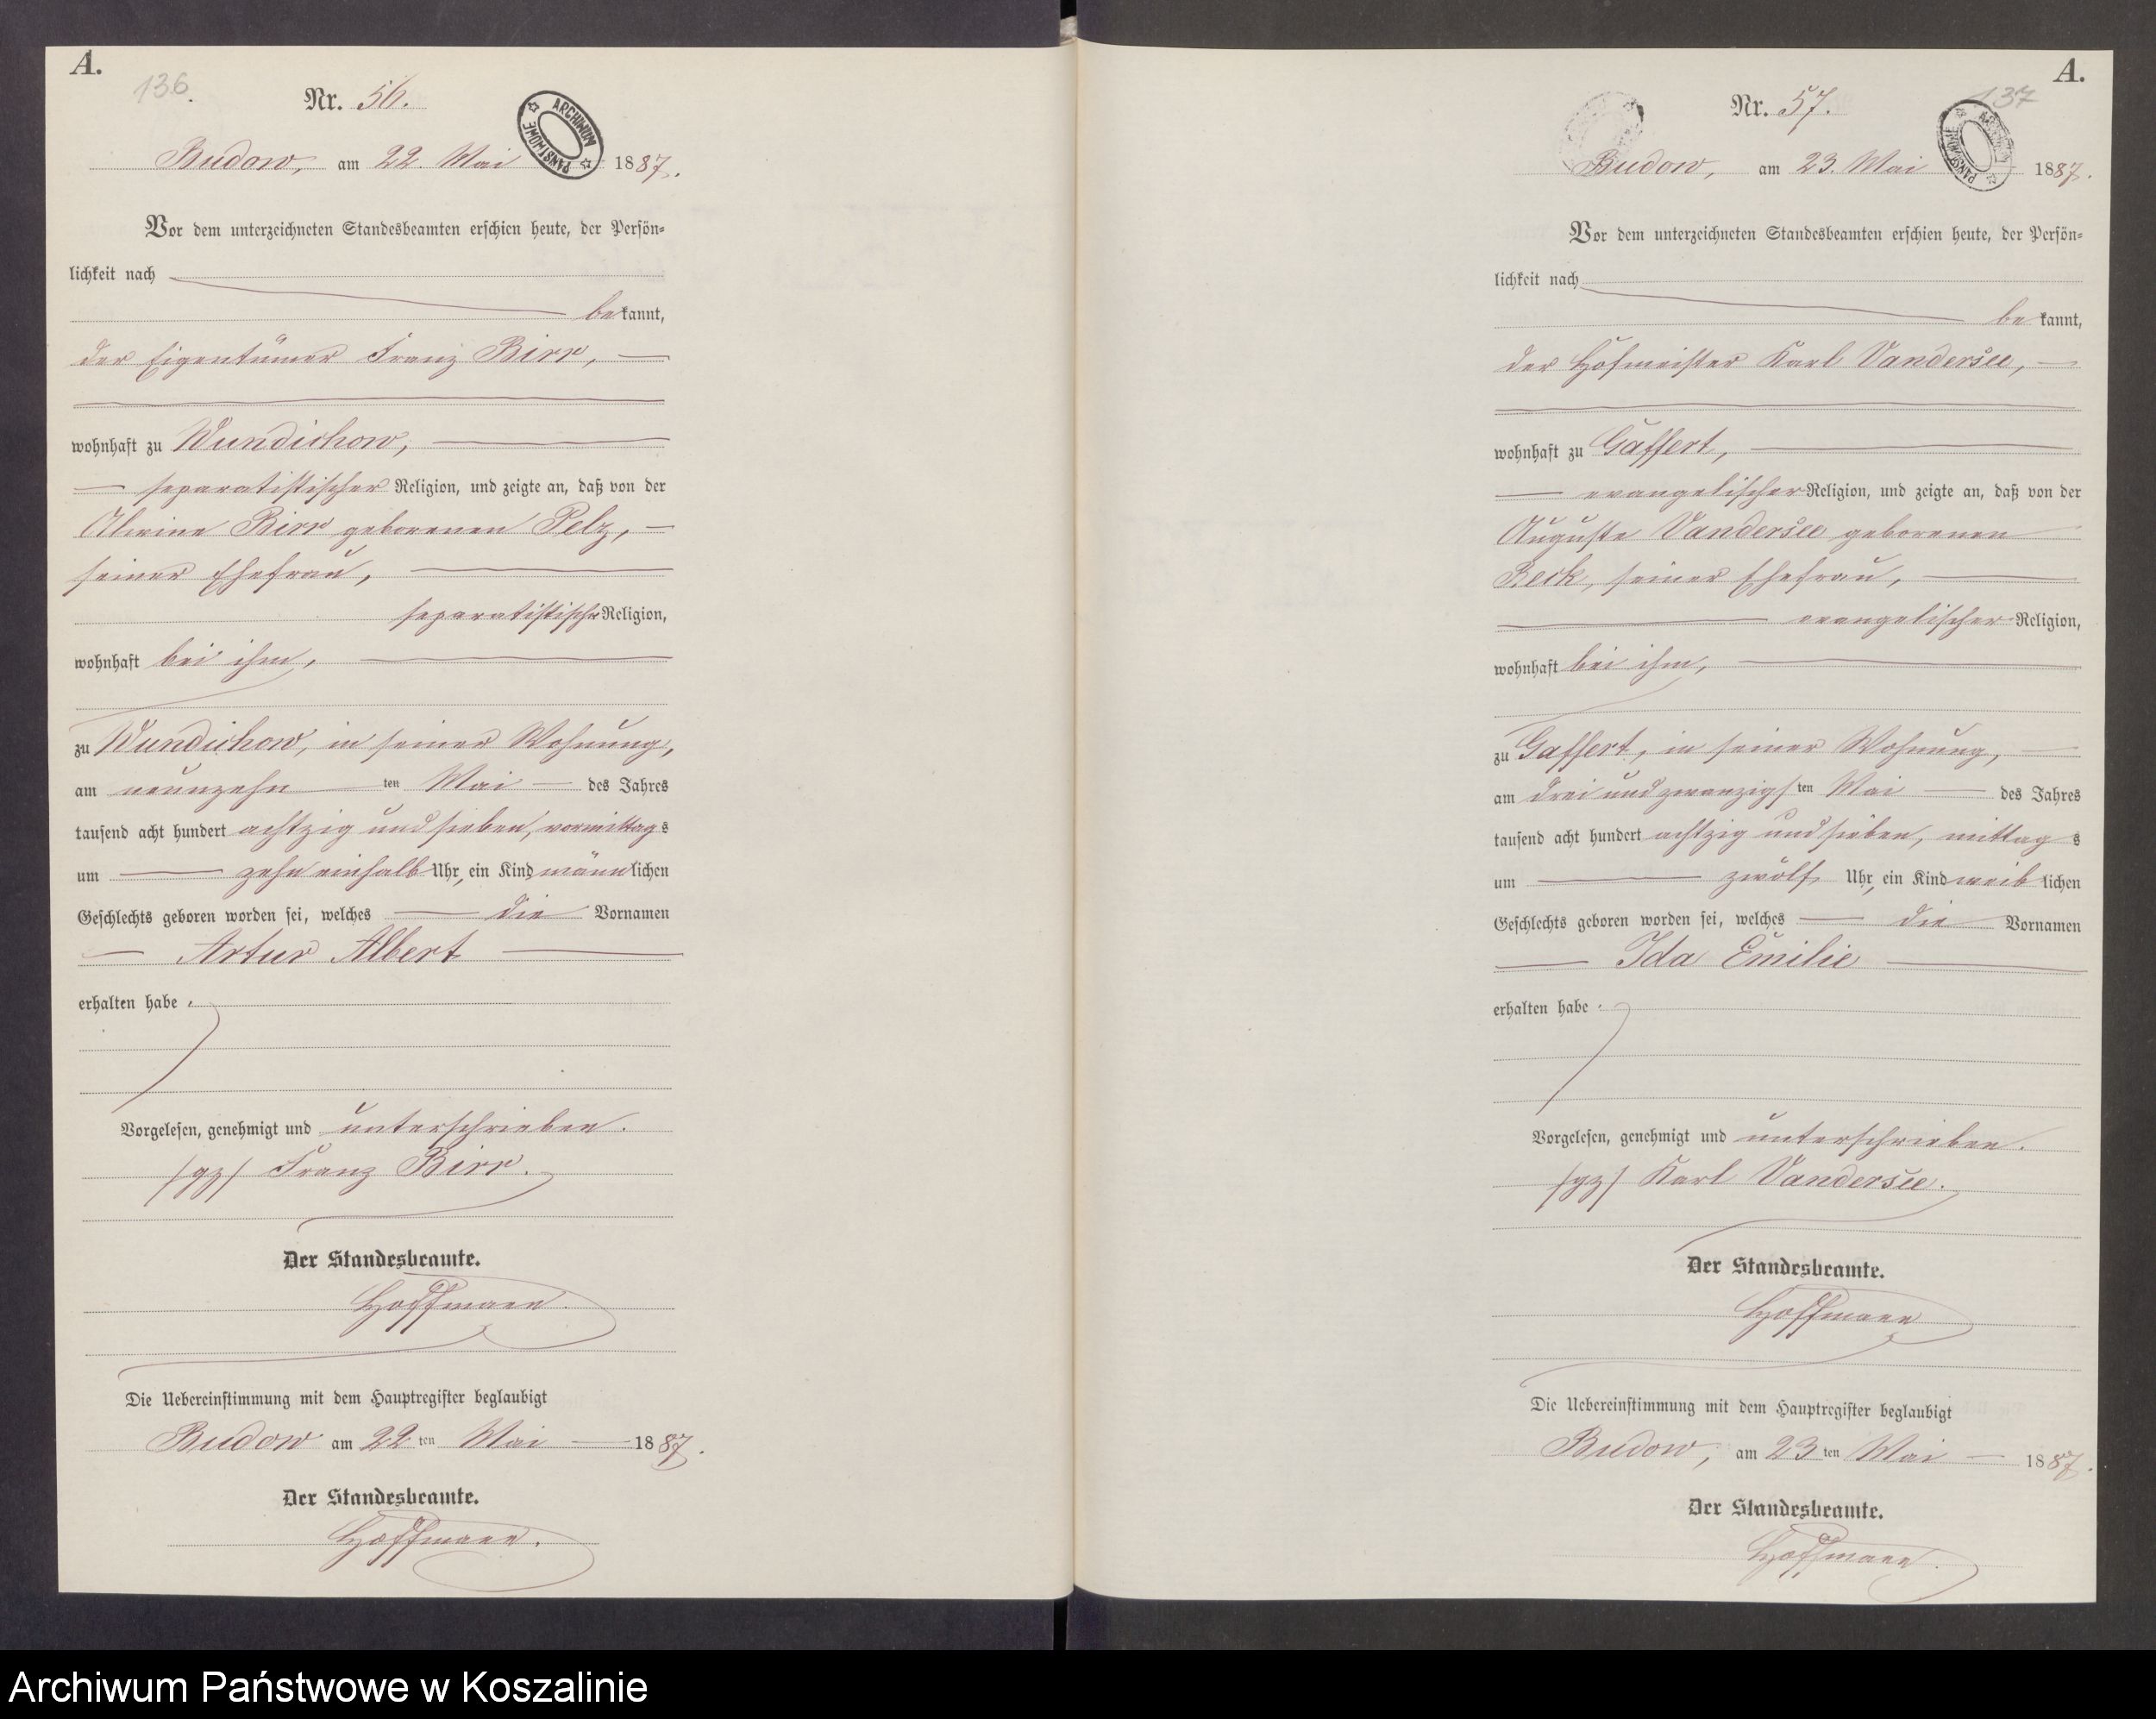 A.
136.
Nr. 56.
ARCHIWUM PAŃSTWOWE
Budow, am 22. Mai 1887.
Vor dem unterzeichneten Standesbeamten erschien heute, der Persön-
lichkeit nach
bekannt,
der Eigentümer Franz Birr,
wohnhaft zu Wundichow,
separatistischer Religion, und zeigte an, daß von der
Alwine Birr geborenen Pelz,
seiner Ehefrau,
separatistischer Religion,
wohnhaft bei ihm,
zu Wundichow, in seiner Wohnung,
am neunzehnten Mai des Jahres
tausend acht hundert achtzig und sieben, vormittags
um zehn einhalb Uhr, ein Kind männlichen
Geschlechts geboren worden sei, welches die Vornamen
Artur Albert
erhalten habe.
Vorgelesen, genehmigt und unterschrieben.
/gz/ Franz Birr.
Der Standesbeamte.
Hoffmann.
Die Uebereinstimmung mit dem Hauptregister beglaubigt
Budow am 22ten Mai 1887.
Der Standesbeamte.
Hoffmann.
A.
137
Nr. 57.
ARCHIWUM PAŃSTWOWE
Budow, am 23. Mai 1887.
Vor dem unterzeichneten Standesbeamten erschien heute, der Persön-
lichkeit nach
bekannt,
der Hofmeister Karl Vandersee,
wohnhaft zu Gaffert,
evangelischer Religion, und zeigte an, daß von der
Auguste Vandersee geborenen
Beck, seiner Ehefrau,
evangelischer Religion,
wohnhaft bei ihm,
zu Gaffert, in seiner Wohnung,
am drei und zwanzigsten Mai des Jahres
tausend acht hundert achtzig und sieben, mittags
um zwölf Uhr, ein Kind weiblichen
Geschlechts geboren worden sei, welches die Vornamen
Ida Emilie
erhalten habe.
Vorgelesen, genehmigt und unterschrieben.
/gz/ Karl Vandersee.
Der Standesbeamte.
Hoffmann
Die Uebereinstimmung mit dem Hauptregister beglaubigt
Budow, am 23ten Mai 1887.
Der Standesbeamte.
Hoffmann.
Archiwum Państwowe w Koszalinie